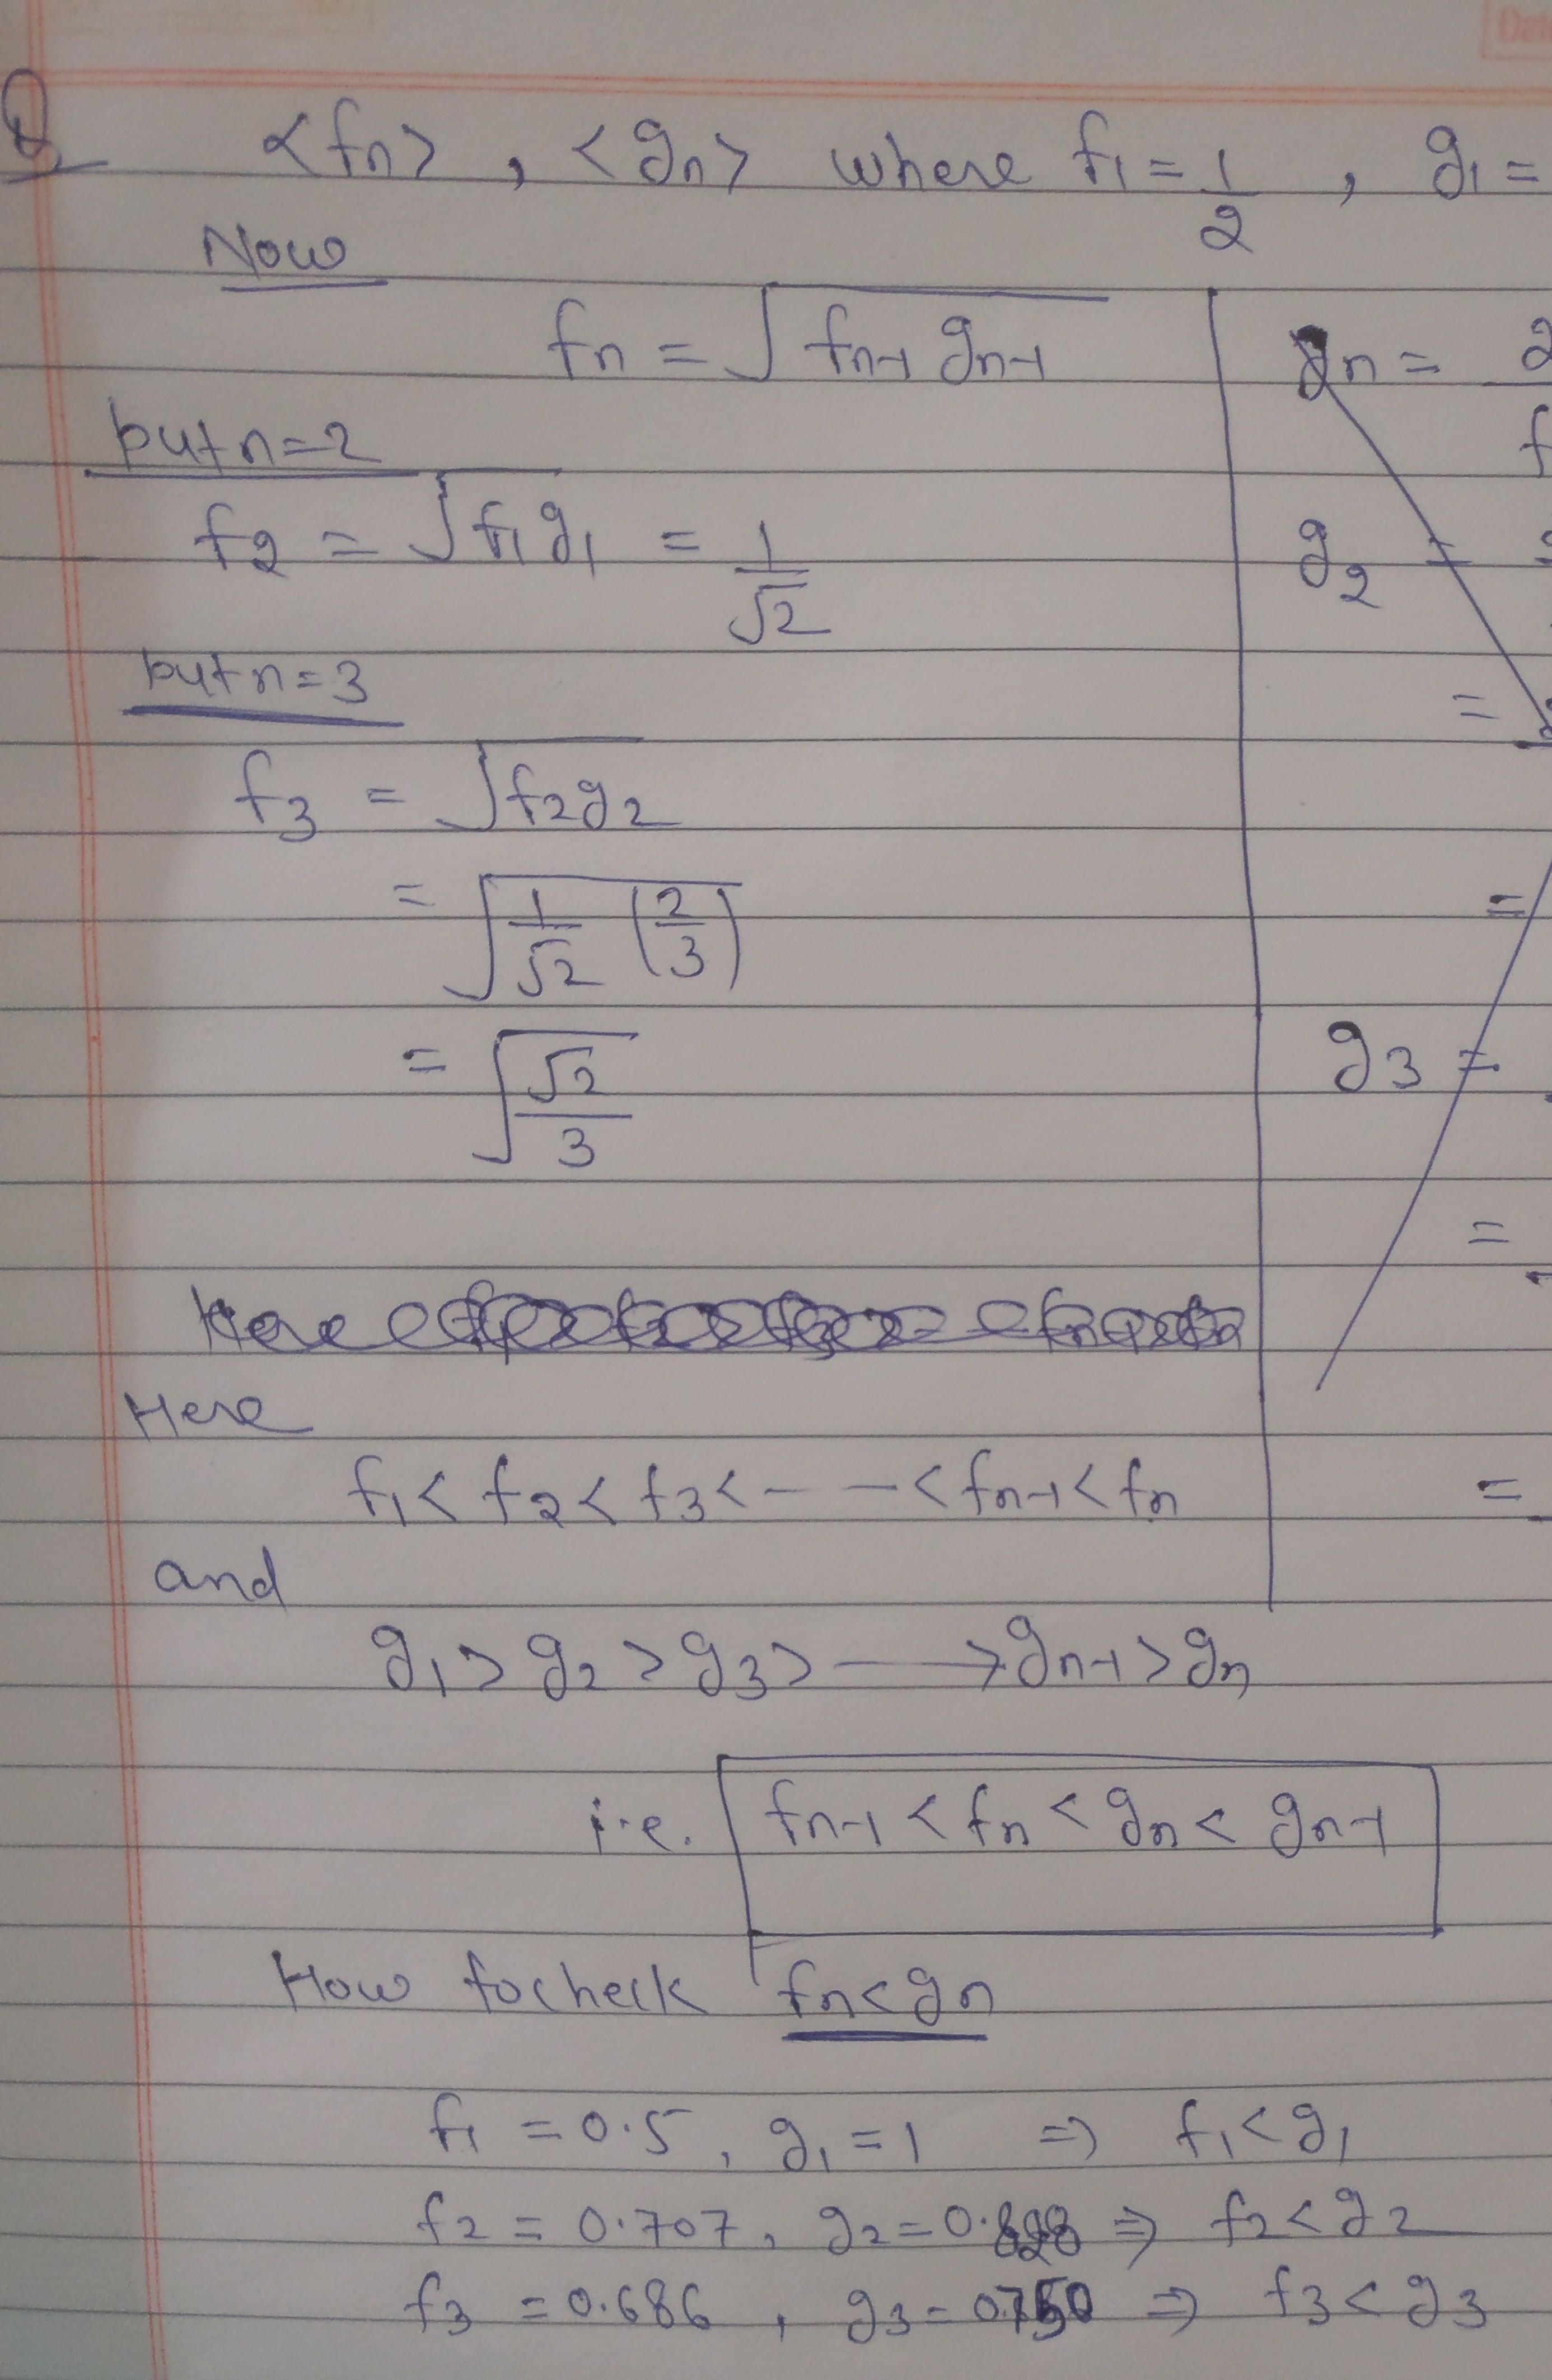 Q <fn> , <gn> where f1 = 1/2 , g1 =
Now
fn = √(fn-1 gn-1)
gn = 2
f
put n=2
f2 = √(f1 g1) = 1/√2
g2 =
put n=3
=
f3 = √(f2 g2)
= √(1/√2 (2/3))
=
= √(√2/3)
g3 =
=
Here
Here
f1 < f2 < f3 < - - < fn-1 < fn
=
and
g1 > g2 > g3 > —> gn-1 > gn
i.e. fn-1 < fn < gn < gn-1
How to check fn < gn
f1 = 0.5 , g1 = 1 ⇒ f1 < g1
f2 = 0.707 , g2 = 0.828 ⇒ f2 < g2
f3 = 0.686 , g3 = 0.750 ⇒ f3 < g3